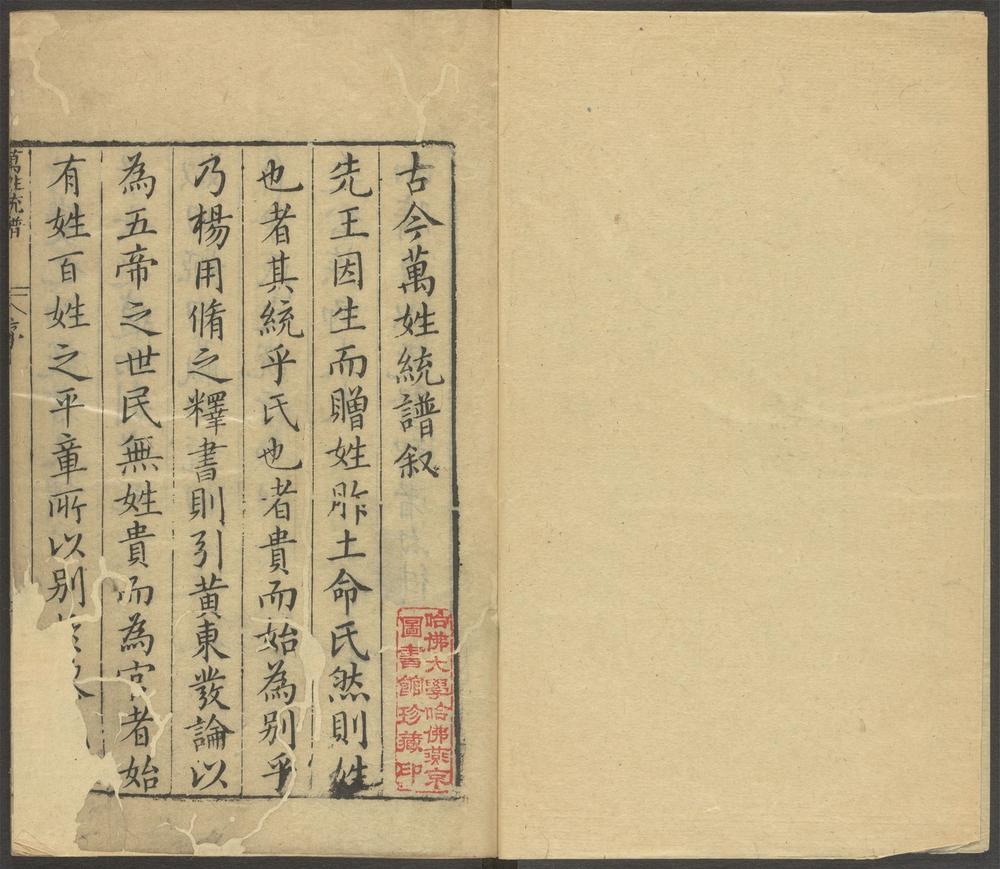 古今萬姓統譜叙
先王因生而贈姓胙土命氏然則姓
也者其統乎氏也者貴而始為別乎
乃楊用脩之釋書則引黃東發論以
為五帝之世民無姓貴而為官者始
有姓百姓之平章所以别
萬姓統譜
序
哈佛大學哈佛燕京
圖書館珍藏印